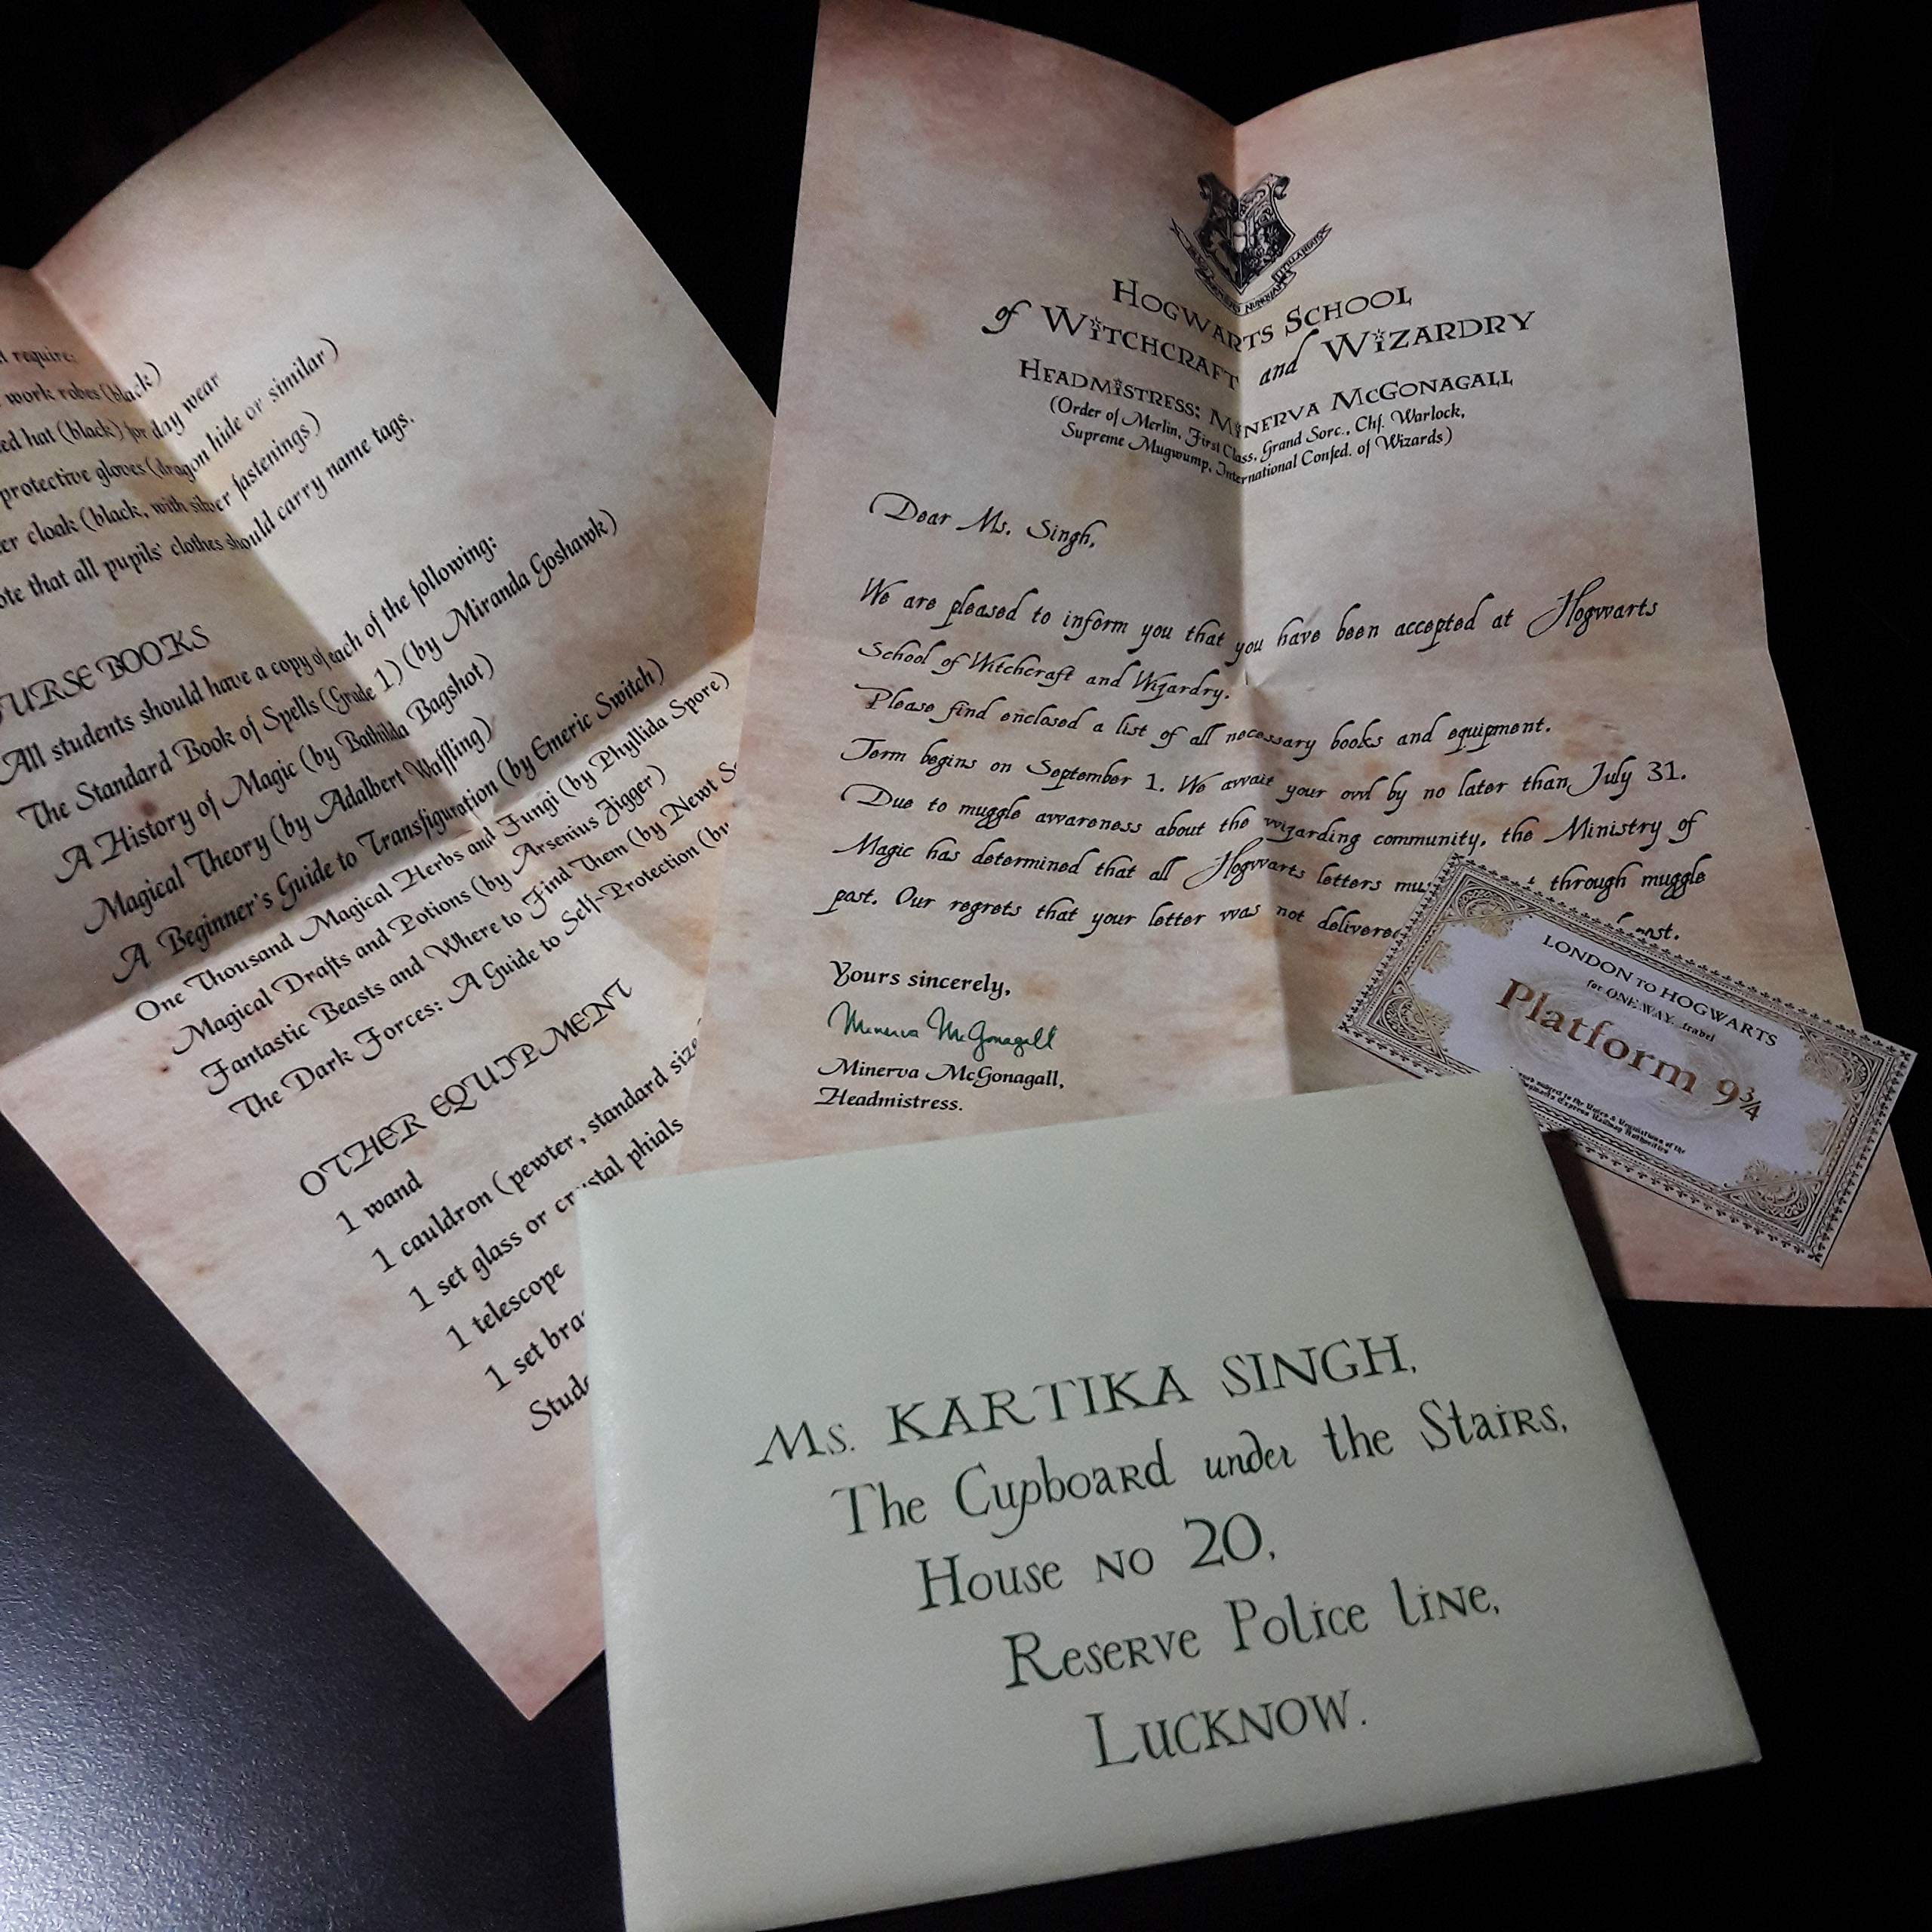 l require:
work robes (black)
ed hat (black) for day wear
protective gloves (dragon hide or similar)
er cloak (black, with silver fastenings)
ote that all pupils' clothes should carry name tags.
URSE BOOKS
All students should have a copy of each of the following:
The Standard Book of Spells (Grade 1) (by Miranda Goshawk)
A History of Magic (by Bathilda Bagshot)
Magical Theory (by Adalbert Waffling)
A Beginner's Guide to Transfiguration (by Emeric Switch)
One Thousand Magical Herbs and Fungi (by Phyllida Spore)
Magical Drafts and Potions (by Arsenius Jigger)
Fantastic Beasts and Where to Find Them (by Newt S
The Dark Forces: A Guide to Self-Protection (by
OTHER EQUIPMENT
1 wand
1 cauldron (pewter, standard size
1 set glass or crystal phials
1 telescope
1 set bra
Stud
HOGWARTS SCHOOL
of WITCHCRAFT and WIZARDRY
HEADMISTRESS: MINERVA McGONAGALL
(Order of Merlin, First Class, Grand Sorc., Chf. Warlock,
Supreme Mugwump, International Confed. of Wizards)
Dear Ms. Singh,
We are pleased to inform you that you have been accepted at Hogwarts
School of Witchcraft and Wizardry.
Please find enclosed a list of all necessary books and equipment.
Term begins on September 1. We await your owl by no later than July 31.
Due to muggle awareness about the wizarding community, the Ministry of
Magic has determined that all Hogwarts letters mu through muggle
post. Our regrets that your letter was not delivered
Yours sincerely,
Minerva McGonagall
Minerva McGonagall,
Headmistress.
LONDON TO HOGWARTS
for ONE WAY travel
Platform 9¾
Ms. KARTIKA SINGH,
The Cupboard under the Stairs,
House no 20,
Reserve Police line,
LUCKNOW.